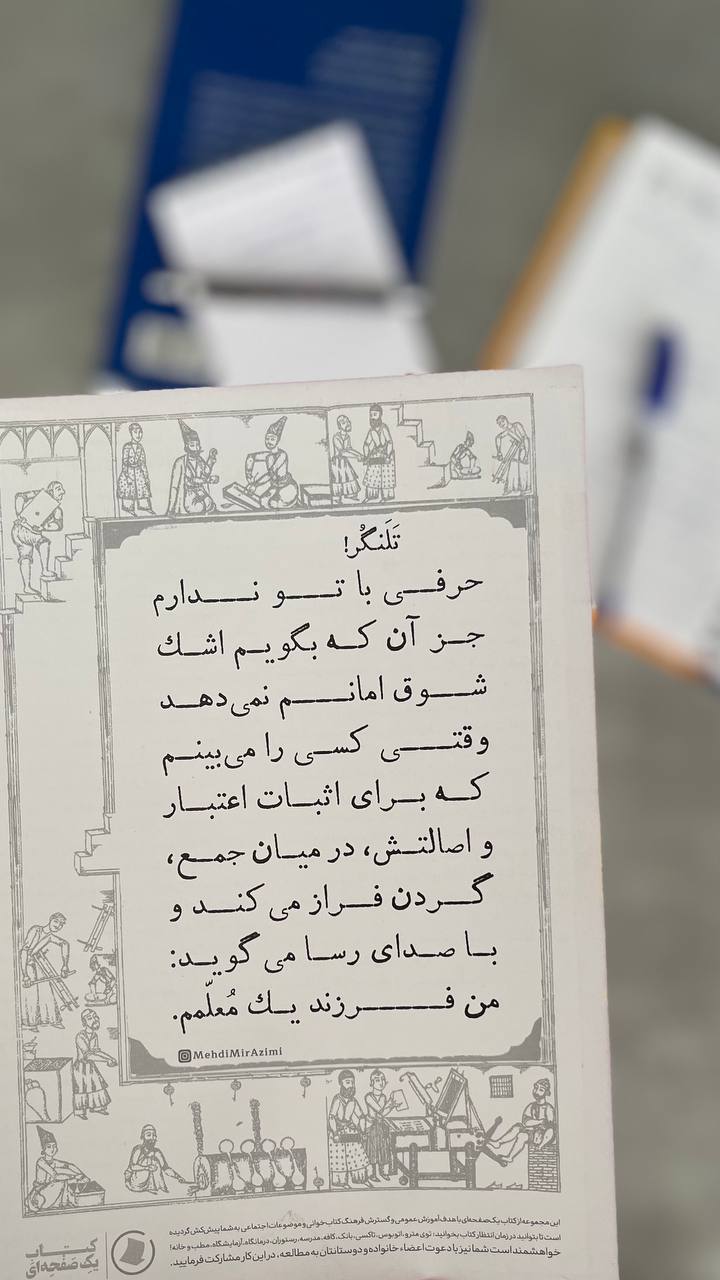 تَلَنگُر!
حرفی با تو ندارم
جز آن که بگویم اشك
شوق امانم نمی‌دهد
وقتی کسی را می‌بینم
که برای اثبات اعتبار
و اصالتش، در میان جمع،
گردن فراز می کند و
با صدای رسا می گوید:
من فرزند یك مُعلّمم.
MehdiMirAzimi
این مجموعه از کتاب یک‌صفحه‌ای با هدف آموزش عمومی و گسترش فرهنگ کتاب‌خوانی و موضوعات اجتماعی به شما پیش‌کش گردیده
است تا بتوانید در زمان انتظار کتاب بخوانید: توی مترو، اتوبوس، تاکسی، بانک، کافه، مدرسه، رستوران، درمانگاه، آزمایشگاه، مطب و خانه!
خواهشمند است شما نیز با دعوت اعضاء خانواده و دوستانتان به مطالعه، در این کار مشارکت فرمایید.
کتاب
یک صَفْحِه‌ای